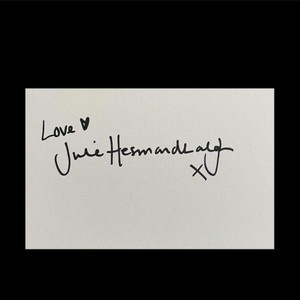 Love ♥
Julie Hesmondhalgh
X